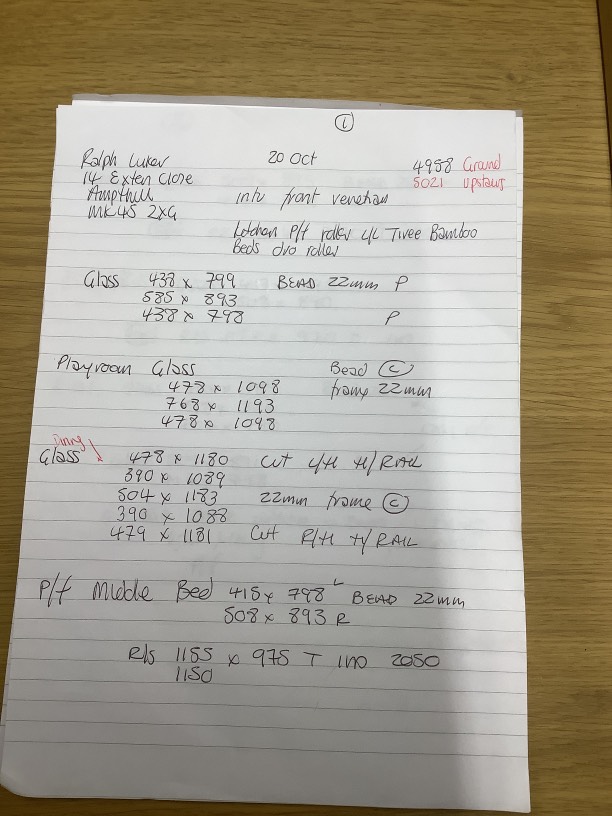 1
Ralph Luker 20 Oct 4958 Grand
14 Exten Close 5021 upstairs
Ampthill intu front venetian
MK45 2XG
Kitchen P/f roller c/c Tivee Bamboo
Beds dvo roller
Glass 438 x 799 BEAD 22mm P
585 x 893
438 x 798 P
Playroom Glass Bead C
478 x 1098 frame 22mm
768 x 1193
478 x 1098
Dining
Glass 478 x 1180 Cut L/H H/RAIL
390 x 1089
504 x 1183 22mm frame C
390 x 1088
479 x 1181 Cut R/H H/RAIL
P/f Middle Bed 415 x 798 L BEAD 22mm
508 x 893 R
R/s 1155 x 975 T 2050
1150